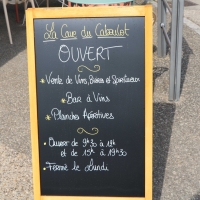 La Cave du Caboulot
OUVERT
Vente de Vins, Bières et Spiritueux
Bar à Vins
Planches Apéritives
Ouvert de 9h30 à 13h
et de 15h à 19h30
Fermé le Lundi